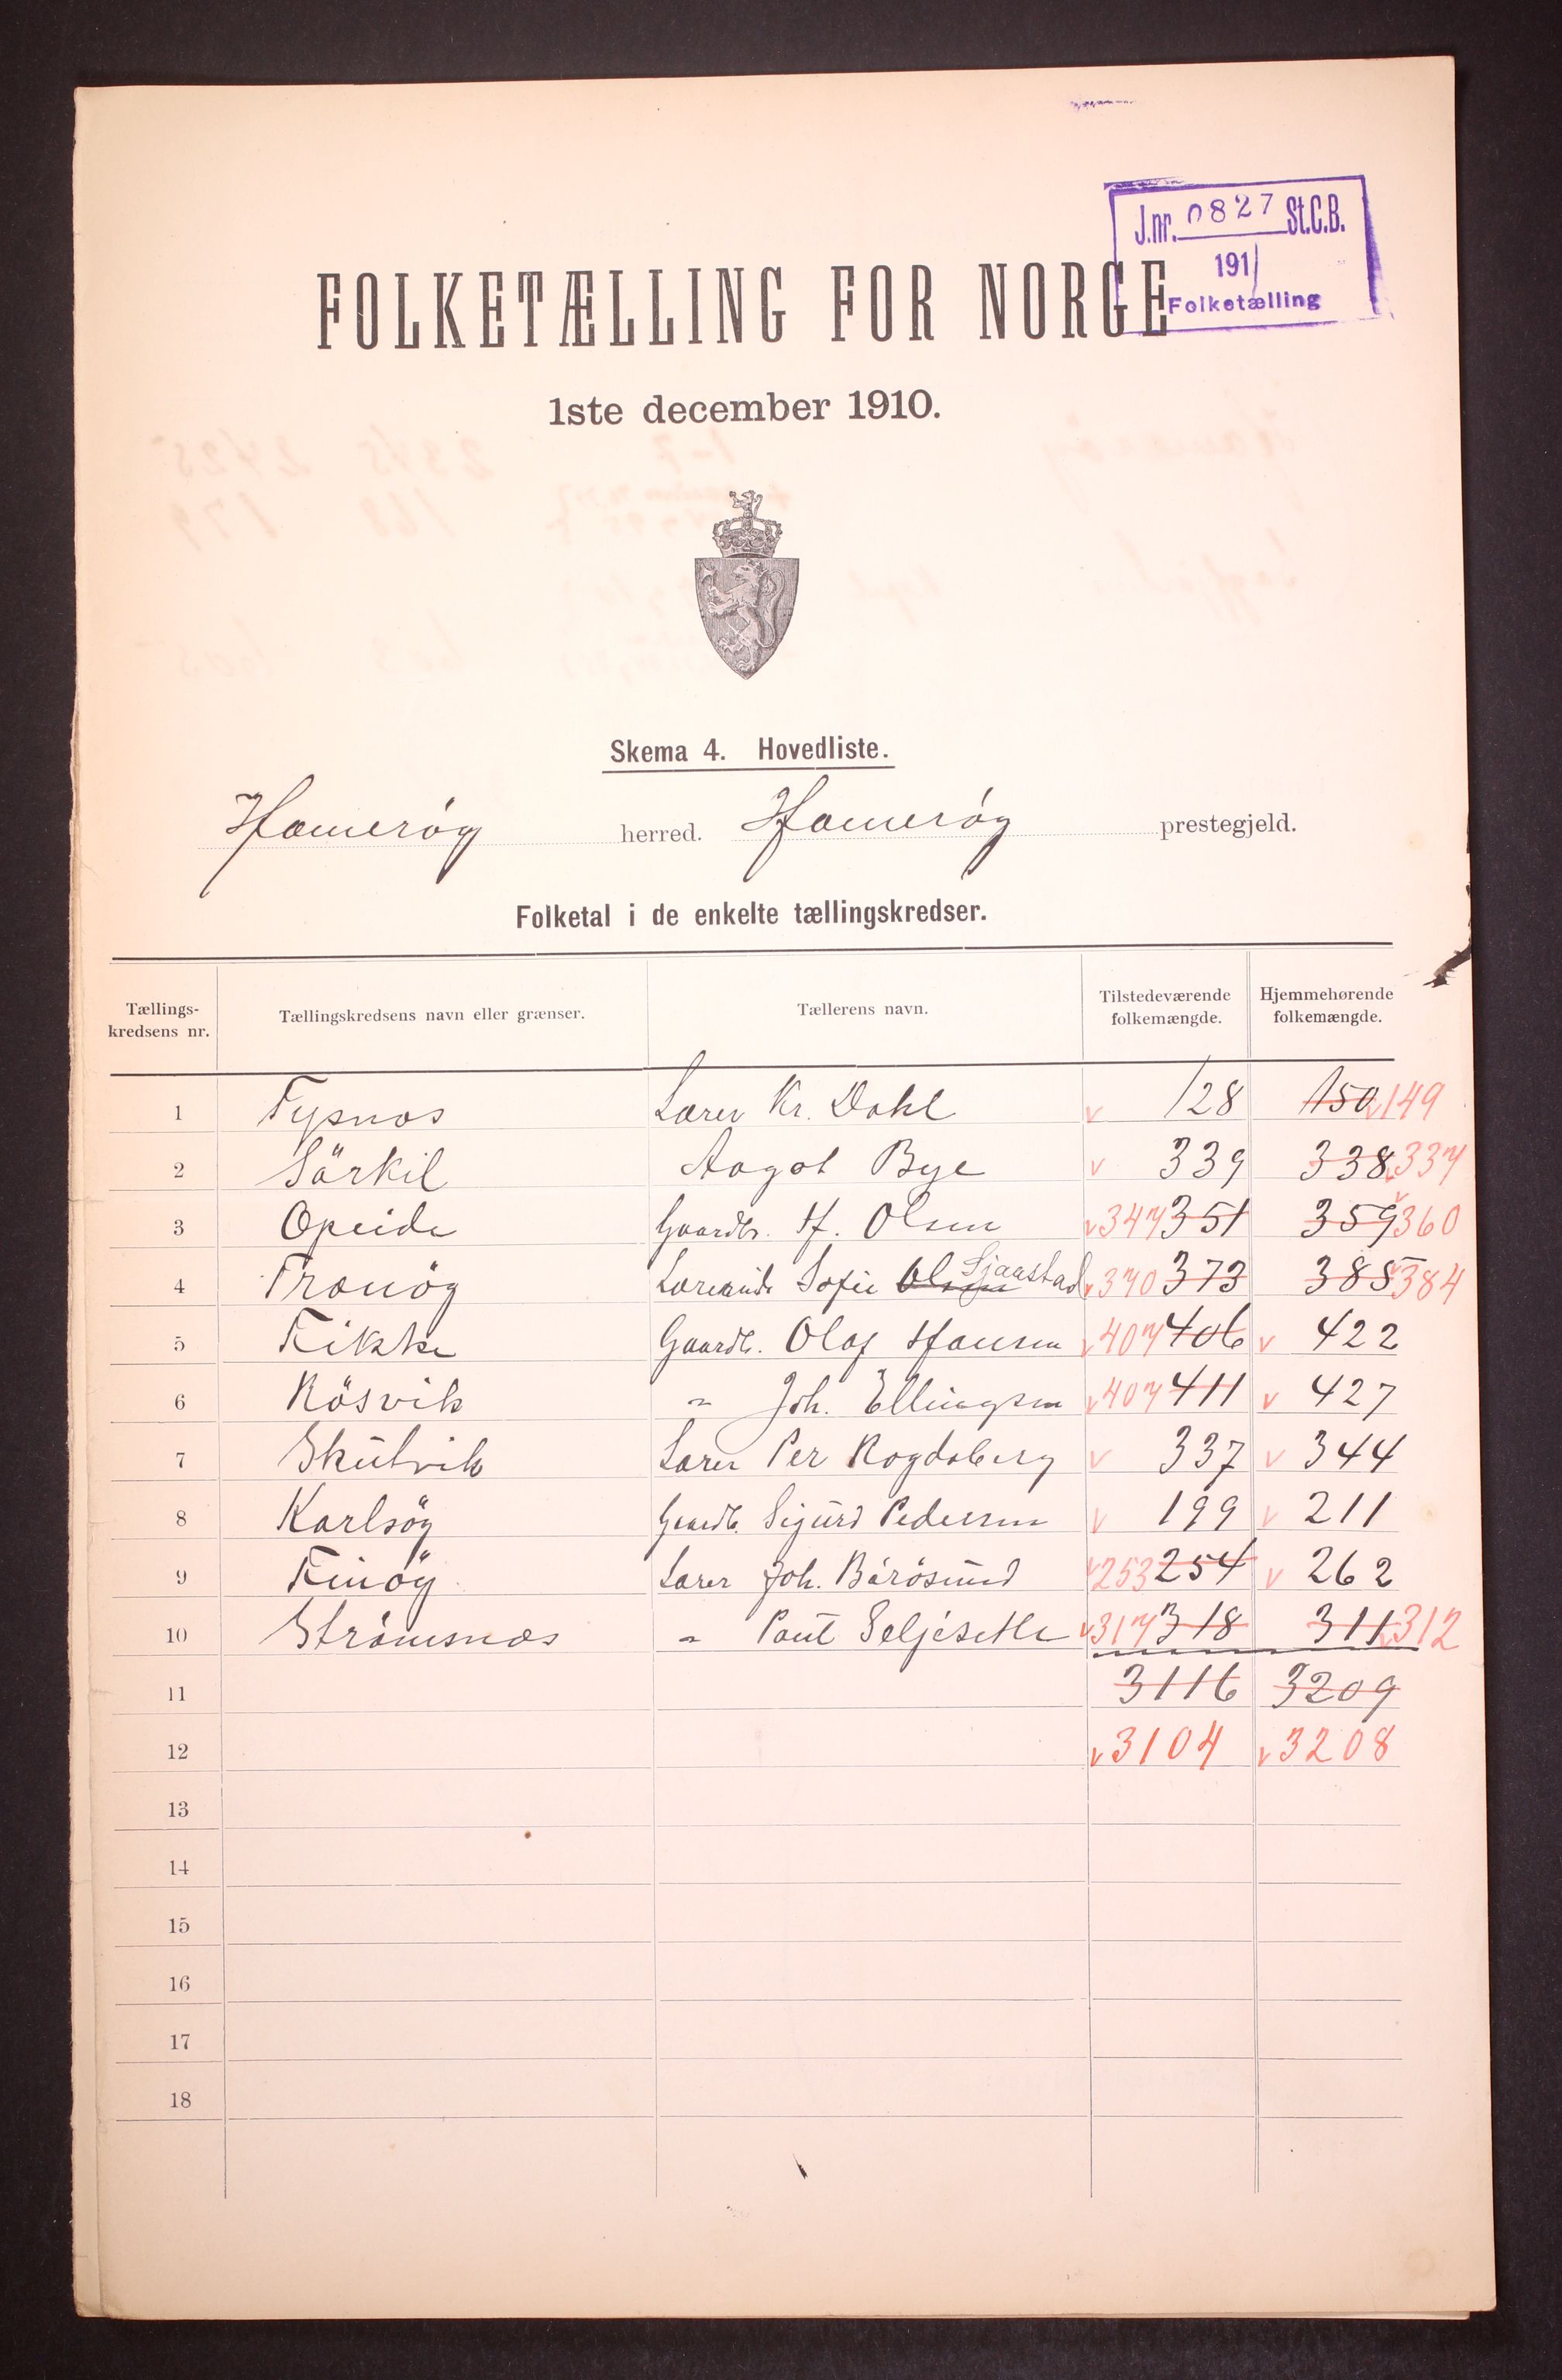 J.nr. 0827 St.C.B.
191
Folketælling
FOLKETÆLLING FOR NORGE
1ste december 1910.
Skema 4. Hovedliste.
Hamerøy herred. Hamerøy prestegjeld.
Folketal i de enkelte tællingskredser.
Tællings-kredsens nr. Tællingskredsens navn eller grænser. Tællerens navn. Tilstedeværende folkemængde. Hjemmehørende folkemængde.
1 Tysnes Lærer Kr. Dahl v 128 150 v 149
2 Sörkil Aagot Bye v 339 338 v 337
3 Opeide Gaardbr. H. Olsen v 347 351 359 v 360
4 Tranöy Lærerinde Sofie Olsen Sjaastad v 370 373 385 v 384
5 Fikke Gaardb. Olaf Hansen v 407 406 v 422
6 Rösvik " Joh. Ellingsen v 407 411 v 427
7 Skutvik Lærer Per Rogdaberg v 337 v 344
8 Karlsöy Gaardb. Sigurd Pedersen v 199 v 211
9 Finöy Lærer Joh. Barösund v 253 254 v 262
10 Strömsnes " Paul Seljesetle v 317 318 311 v 312
11 3116 3209
12 v 3104 v 3208
13
14
15
16
17
18